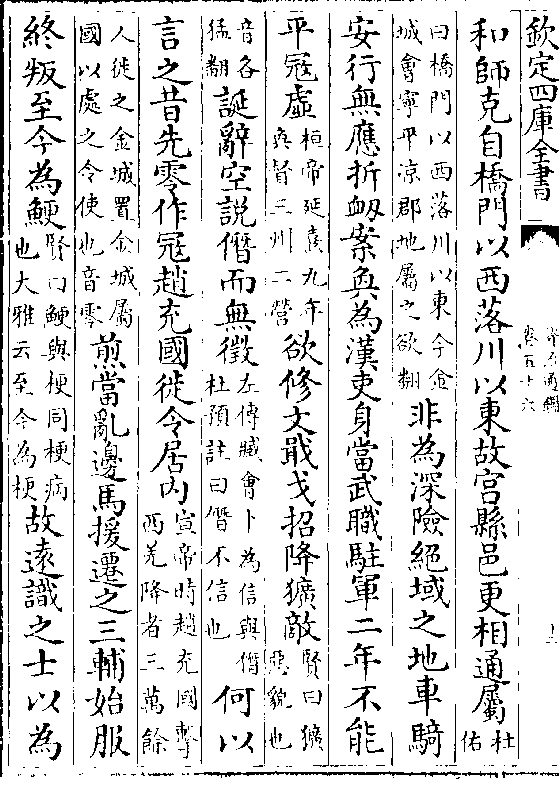 欽定四庫全書
資治通鑑
卷五十六
和師克自橋門以西落川以東故宫縣邑更相通屬
杜
佑
曰橋門以西落川以東今金
城會寧平凉郡地屬之欲翻
非為深險絕域之地車騎
安行無應折衂案奐為漢吏身當武職駐軍二年不能
平冦虛
桓帝延熹九年
奐督三州二營
欲修文戢戈招降獷敵
賢曰獷
惡貌也
音各
猛翻
誕辭空說僭而無徵
左傳臧會卜為信與僭
杜預註曰僭不信也
何以
言之昔先零作冦趙充國徙令居内
宣帝時趙充國擊
西羌降者三萬餘
人徙之金城置金城屬
國以處之令使也音零
煎當亂邊馬援遷之三輔始服
終叛至今為鯁
賢曰鯁與梗同梗病
也大雅云至今為梗
故遠識之士以為